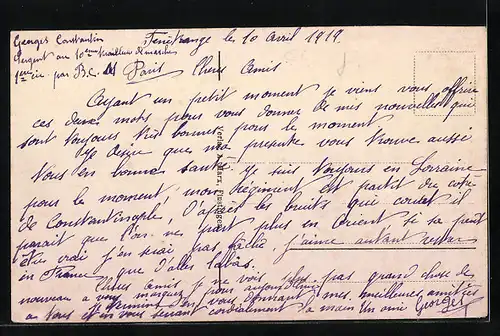 Georges Constantin
Sergent au 10eme Tirailleurs de marche
1ere Cie par B.C.M. Paris
Fénétrange le 10 Avril 1919.
Chers Amis
Ayant un petit moment je viens vous offrir
ces deux mots pour vous donner de mes nouvelles qui
sont toujours très bonnes pour le moment.
Je désire que ma présente vous trouve aussi
Tous en bonne santé. Je suis toujours en Lorraine
pour le moment, mon Régiment est partit du côté
de Constantinople, D'après les bruits que courait il
parait que l'on ne part plus en Orient si sa peut
être vrai j'en serai pas faché, j'aime autant rester
en France que d'aller labàs.
Chers Amis je ne vois plus pas grand chose de
nouveau a vous marquer pour aujourd'hui
Je termine en vous donnant mes meilleures amitiés
a Tous et en vous serrant cordialement la main Un ami Georges
Verlag A. Marx,